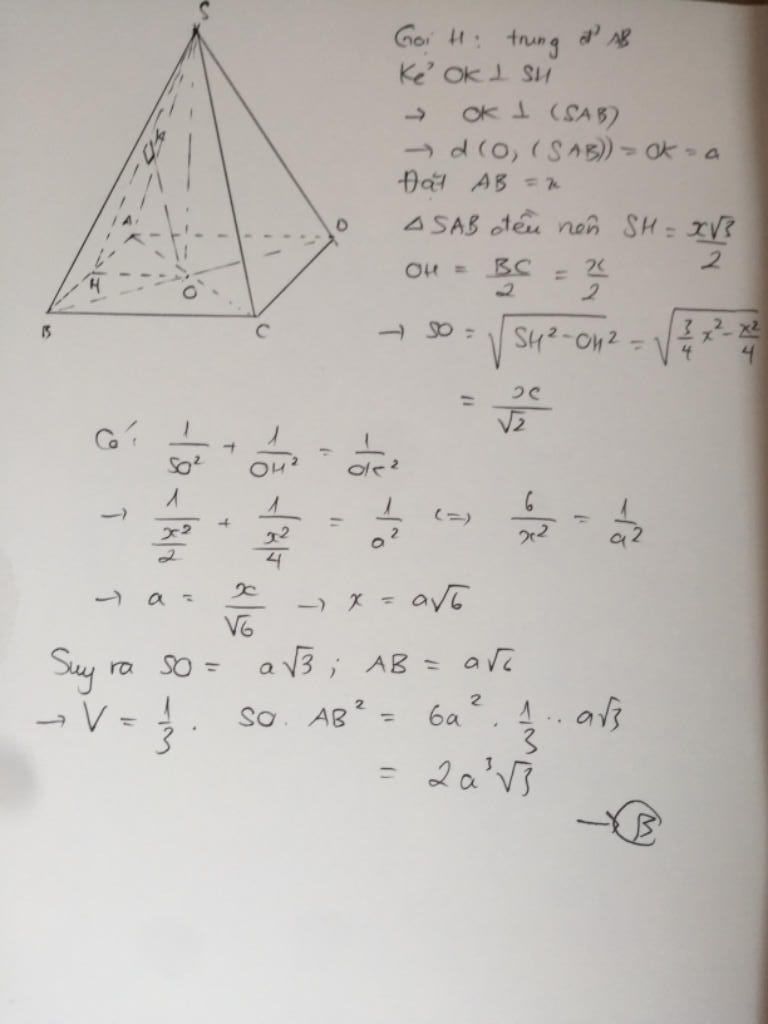 S
K
A
D
H
O
B
C
Gọi H: trung đ' AB
Kẻ OK ⊥ SH
→ OK ⊥ (SAB)
→ d(O, (SAB)) = OK = a
Đặt AB = x
△ SAB đều nên SH = x√3/2
OH = BC/2 = x/2
→ SO = √(SH² - OH²) = √(3/4 x² - x²/4)
= x/√2
Có: 1/SO² + 1/OH² = 1/OK²
→ 1/(x²/2) + 1/(x²/4) = 1/a² (=) 6/x² = 1/a²
→ a = x/√6 → x = a√6
Suy ra SO = a√3; AB = a√6
→ V = 1/3 . SO . AB² = 6a² . 1/3 .. a√3
= 2a³√3
→ B